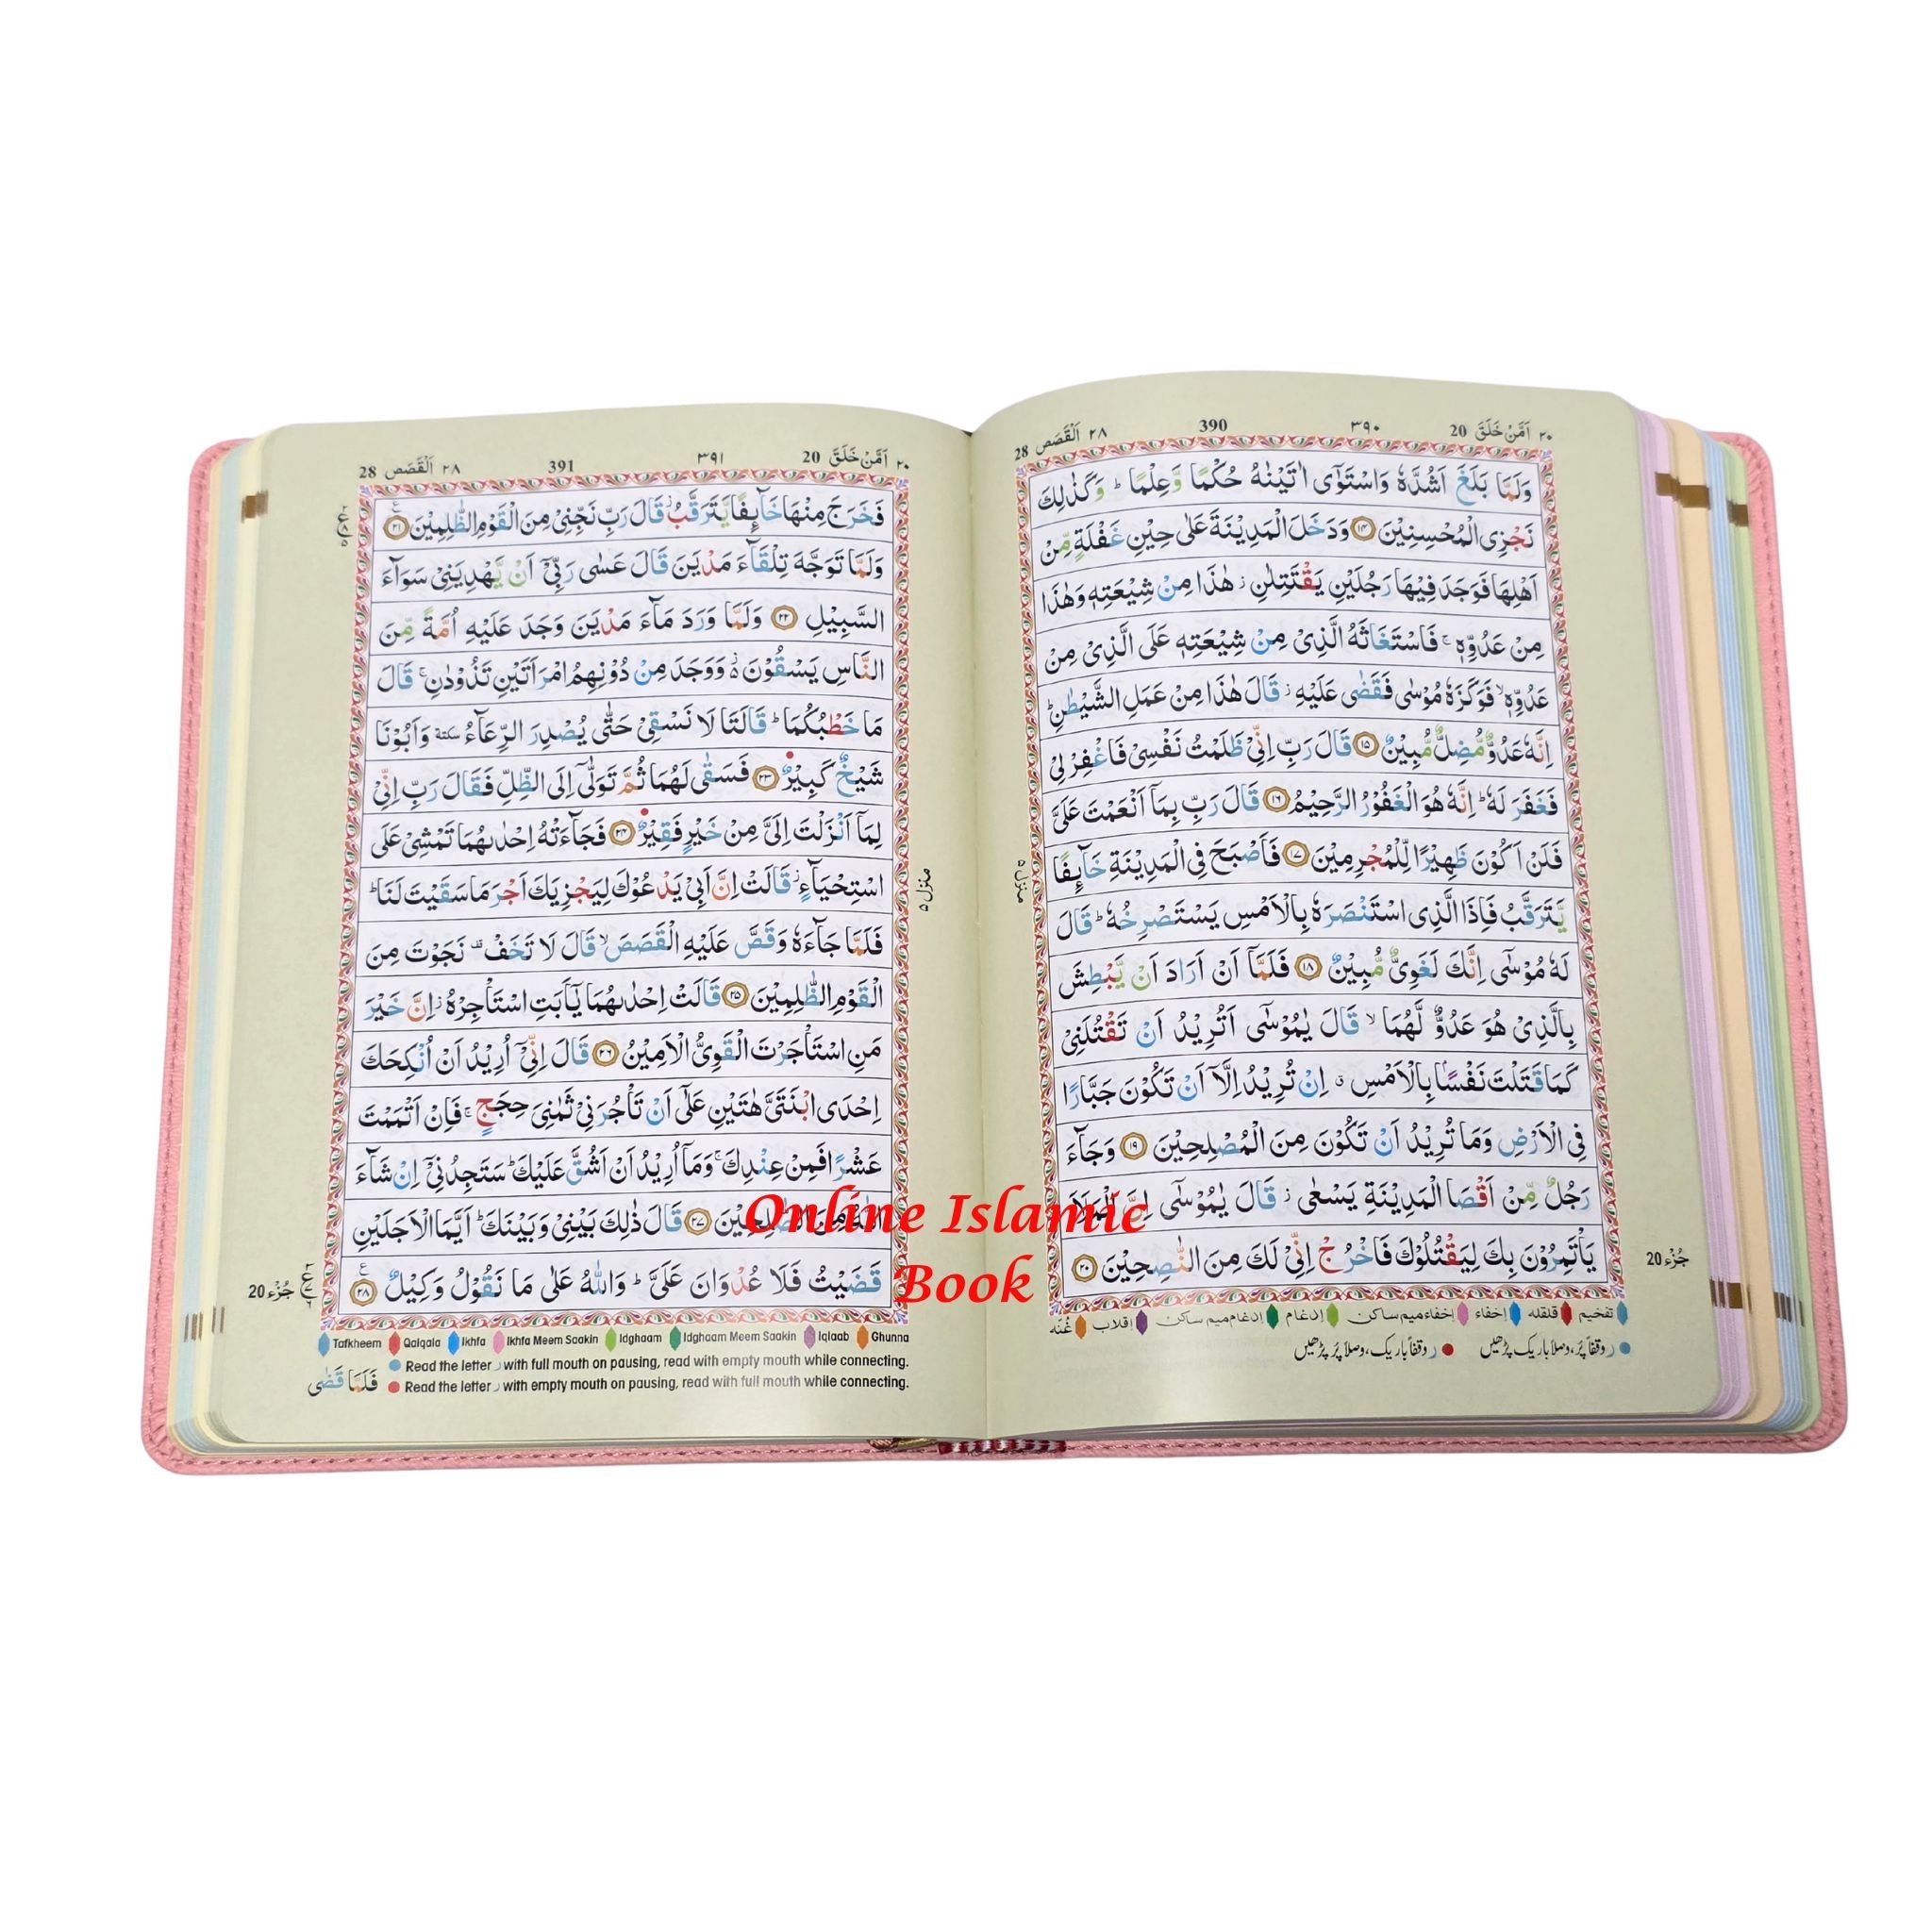 ٢٠ اَمَّنْ خَلَقَ 20 ٣٩٠ 390 ٢٨ اَلْقَصَص 28
وَلَمَّا بَلَغَ اَشُدَّهٗ وَاسْتَوٰٓى اٰتَيْنٰهُ حُكْمًا وَّعِلْمًا ؕ وَكَذٰلِكَ
نَجْزِى الْمُحْسِنِيْنَ ١٤ وَدَخَلَ الْمَدِيْنَةَ عَلٰى حِيْنِ غَفْلَةٍ مِّنْ
اَهْلِهَا فَوَجَدَ فِيْهَا رَجُلَيْنِ يَقْتَتِلٰنِ ؗ هٰذَا مِنْ شِيْعَتِهٖ وَهٰذَا
مِنْ عَدُوِّهٖ ۚ فَاسْتَغَاثَهُ الَّذِىْ مِنْ شِيْعَتِهٖ عَلَى الَّذِىْ مِنْ
عَدُوِّهٖ ۙ فَوَكَزَهٗ مُوْسٰى فَقَضٰى عَلَيْهِ ؗ قَالَ هٰذَا مِنْ عَمَلِ الشَّيْطٰنِ ؕ
اِنَّهٗ عَدُوٌّ مُّضِلٌّ مُّبِيْنٌ ١٥ قَالَ رَبِّ اِنِّىْ ظَلَمْتُ نَفْسِىْ فَاغْفِرْ لِىْ
فَغَفَرَ لَهٗ ؕ اِنَّهٗ هُوَ الْغَفُوْرُ الرَّحِيْمُ ١٦ قَالَ رَبِّ بِمَاۤ اَنْعَمْتَ عَلَىَّ
فَلَنْ اَكُوْنَ ظَهِيْرًا لِّلْمُجْرِمِيْنَ ١٧ فَاَصْبَحَ فِى الْمَدِيْنَةِ خَآئِفًا
يَّتَرَقَّبُ فَاِذَا الَّذِى اسْتَنْصَرَهٗ بِالْاَمْسِ يَسْتَصْرِخُهٗ ؕ قَالَ
لَهٗ مُوْسٰٓى اِنَّكَ لَغَوِىٌّ مُّبِيْنٌ ١٨ فَلَمَّاۤ اَنْ اَرَادَ اَنْ يَّبْطِشَ
بِالَّذِىْ هُوَ عَدُوٌّ لَّهُمَا ۙ قَالَ يٰمُوْسٰٓى اَتُرِيْدُ اَنْ تَقْتُلَنِىْ
كَمَا قَتَلْتَ نَفْسًا بِالْاَمْسِ ۖ اِنْ تُرِيْدُ اِلَّاۤ اَنْ تَكُوْنَ جَبَّارًا
فِى الْاَرْضِ وَمَا تُرِيْدُ اَنْ تَكُوْنَ مِنَ الْمُصْلِحِيْنَ ١٩ وَجَآءَ
رَجُلٌ مِّنْ اَقْصَا الْمَدِيْنَةِ يَسْعٰى ؗ قَالَ يٰمُوْسٰٓى اِنَّ الْمَلَاَ
يَاْتَمِرُوْنَ بِكَ لِيَقْتُلُوْكَ فَاخْرُجْ اِنِّىْ لَكَ مِنَ النّٰصِحِيْنَ ٢٠
منزل ٥
جُزْء 20
تفخيم قلقله إخفاء إخفاء ميم ساكن إدغام إدغام ميم ساكن إقلاب غُنّه
ر وقفاً پُر، وصلاً باریک پڑھیں ر وقفاً باریک، وصلاً پُر پڑھیں
٢٠ اَمَّنْ خَلَقَ 20 ٣٩١ 391 ٢٨ اَلْقَصَص 28
فَخَرَجَ مِنْهَا خَآئِفًا يَّتَرَقَّبُ ؗ قَالَ رَبِّ نَجِّنِىْ مِنَ الْقَوْمِ الظّٰلِمِيْنَ ٢١
وَلَمَّا تَوَجَّهَ تِلْقَآءَ مَدْيَنَ قَالَ عَسٰى رَبِّىْۤ اَنْ يَّهْدِيَنِىْ سَوَآءَ
السَّبِيْلِ ٢٢ وَلَمَّا وَرَدَ مَآءَ مَدْيَنَ وَجَدَ عَلَيْهِ اُمَّةً مِّنَ
النَّاسِ يَسْقُوْنَ ۬ وَوَجَدَ مِنْ دُوْنِهِمُ امْرَاَتَيْنِ تَذُوْدٰنِ ۚ قَالَ
مَا خَطْبُكُمَا ؕ قَالَتَا لَا نَسْقِىْ حَتّٰى يُصْدِرَ الرِّعَآءُ سكتة وَاَبُوْنَا
شَيْخٌ كَبِيْرٌ ٢٣ فَسَقٰى لَهُمَا ثُمَّ تَوَلّٰٓى اِلَى الظِّلِّ فَقَالَ رَبِّ اِنِّىْ
لِمَاۤ اَنْزَلْتَ اِلَىَّ مِنْ خَيْرٍ فَقِيْرٌ ٢٤ فَجَآءَتْهُ اِحْدٰىهُمَا تَمْشِىْ عَلَى
اسْتِحْيَآءٍ ؗ قَالَتْ اِنَّ اَبِىْ يَدْعُوْكَ لِيَجْزِيَكَ اَجْرَ مَا سَقَيْتَ لَنَا ؕ
فَلَمَّا جَآءَهٗ وَقَصَّ عَلَيْهِ الْقَصَصَ ۙ قَالَ لَا تَخَفْ ۫ نَجَوْتَ مِنَ
الْقَوْمِ الظّٰلِمِيْنَ ٢٥ قَالَتْ اِحْدٰىهُمَا يٰۤاَبَتِ اسْتَاْجِرْهُ ؗ اِنَّ خَيْرَ
مَنِ اسْتَاْجَرْتَ الْقَوِىُّ الْاَمِيْنُ ٢٦ قَالَ اِنِّىْۤ اُرِيْدُ اَنْ اُنْكِحَكَ
اِحْدَى ابْنَتَىَّ هٰتَيْنِ عَلٰٓى اَنْ تَاْجُرَنِىْ ثَمٰنِىَ حِجَجٍ ۚ فَاِنْ اَتْمَمْتَ
عَشْرًا فَمِنْ عِنْدِكَ ۚ وَمَاۤ اُرِيْدُ اَنْ اَشُقَّ عَلَيْكَ ؕ سَتَجِدُنِىْۤ اِنْ شَآءَ
اللّٰهُ مِنَ الصّٰلِحِيْنَ ٢٧ قَالَ ذٰلِكَ بَيْنِىْ وَبَيْنَكَ ؕ اَيَّمَا الْاَجَلَيْنِ
قَضَيْتُ فَلَا عُدْوَانَ عَلَىَّ ؕ وَاللّٰهُ عَلٰى مَا نَقُوْلُ وَكِيْلٌ ٢٨
منزل ٥
جُزْء 20
Tafkheem Qalqala Ikhfa Ikhfa Meem Saakin Idghaam Idghaam Meem Saakin Iqlaab Ghunna
Read the letter ر with full mouth on pausing, read with empty mouth while connecting.
Read the letter ر with empty mouth on pausing, read with full mouth while connecting.
فَلَمَّا قَضٰى
Online Islamic
Book